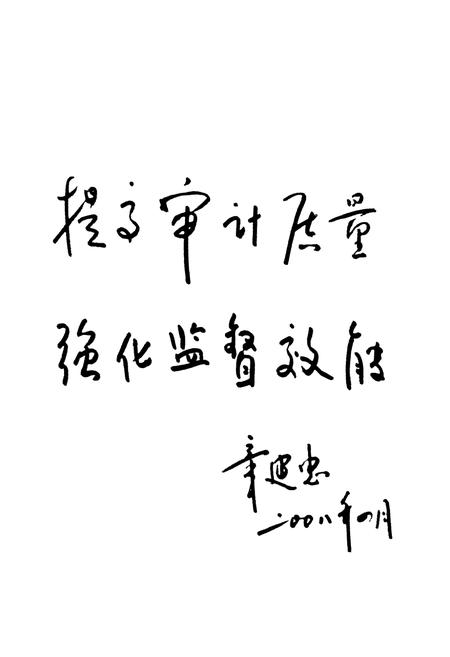 提高审计质量
强化监督效能
章迪忠
二〇〇八年四月